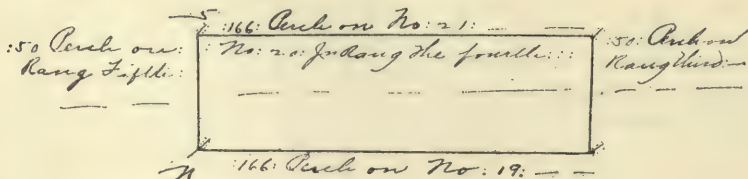 S
:166: Perch on No: 21: — —
:50 Perch on:
Rang Fifth:
— —
: No: 20: In Rang the fourth :::
:50: Perch on
Rang third:—
N :166: Perch on No: 19: — —